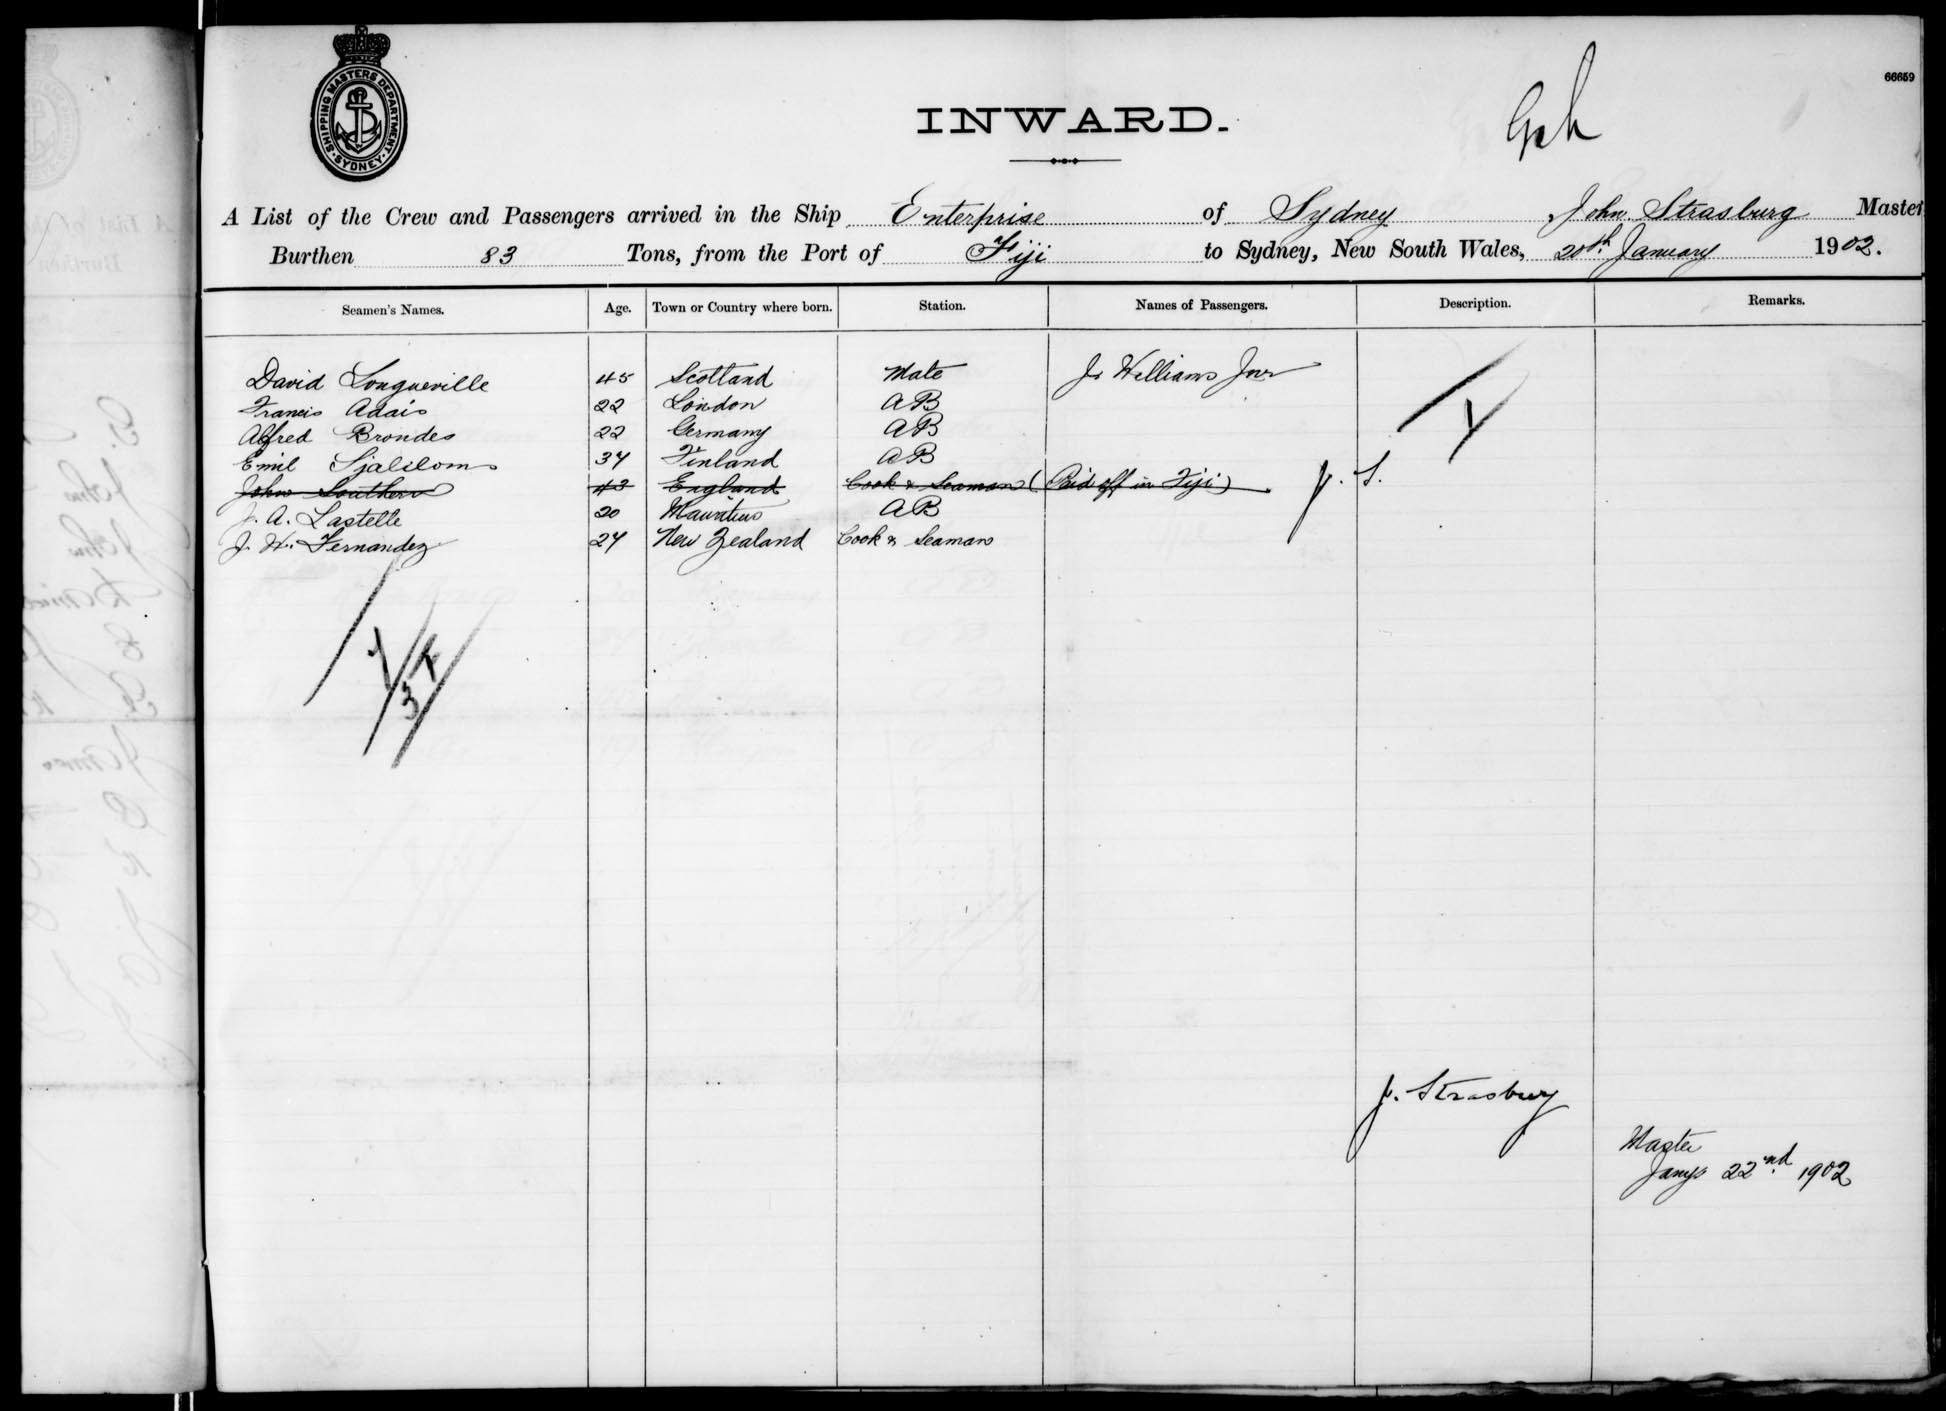 SHIPPING MASTERS DEPARTMENT. SYDNEY.
66659
INWARD.
A List of the Crew and Passengers arrived in the Ship Enterprise of Sydney John Strasburg Master
Burthen 83 Tons, from the Port of Fiji to Sydney, New South Wales, 20th January 1902.
Seamen's Names. Age. Town or Country where born. Station. Names of Passengers. Description. Remarks.
David Longueville 45 Scotland Mate J. Williams Jnr
Francis Adais 22 London AB
Alfred Brondes 22 Germany AB
Emil Sjalilom 34 Finland AB
John Southern 43 England Cook & Seaman (Paid off in Fiji) J. S.
J. A. Lastelle 20 Mauritius AB
J. W. Fernandez 24 New Zealand Cook & Seaman
J. Strasburg
Master
Jany 22nd 1902